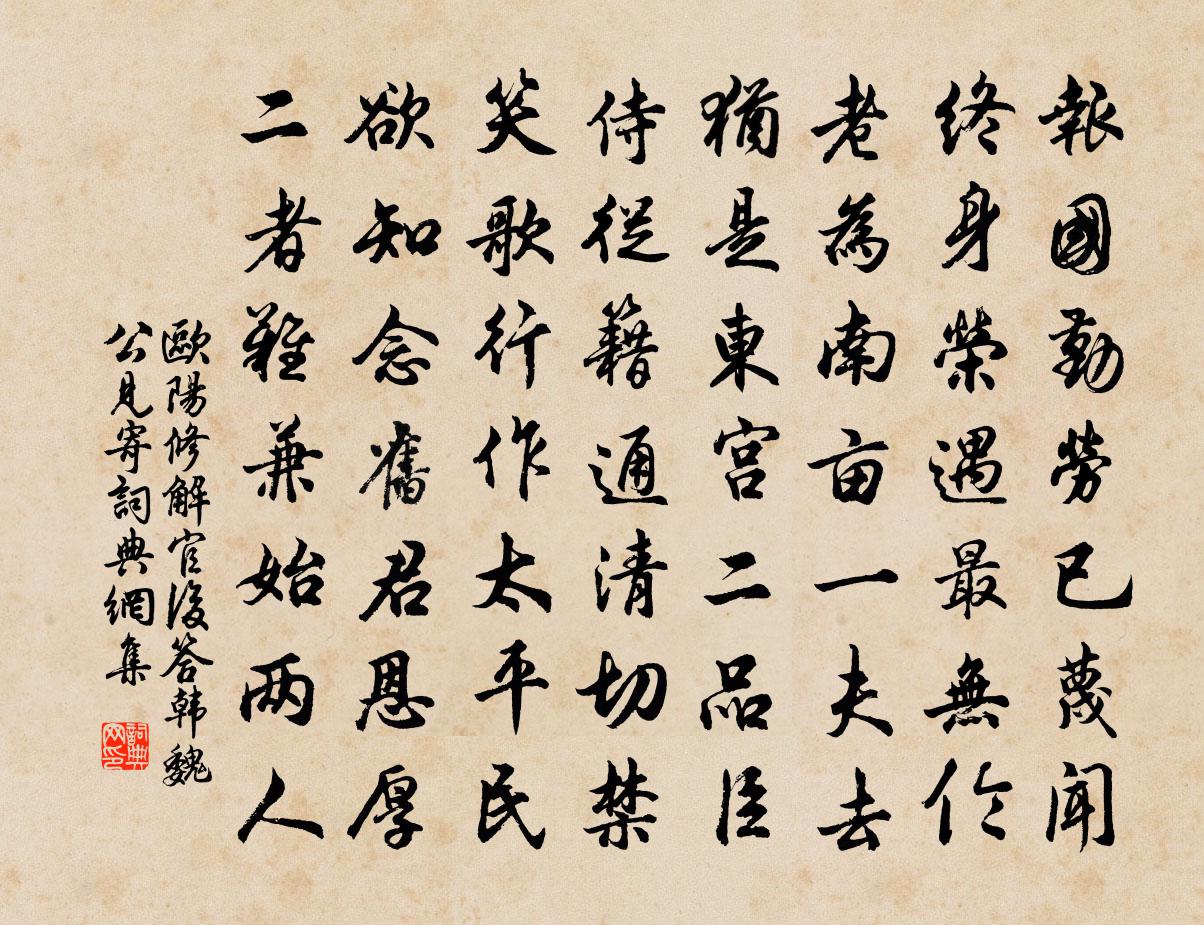 報國勤勞已蔑聞
終身榮遇最無倫
老為南亩一夫去
猶是東宫二品臣
侍從籍通清切禁
笑歌行作太平民
欲知念舊君恩厚
二者難兼始两人
歐陽修解官後答韩魏
公見寄詞典網集
詞典网印